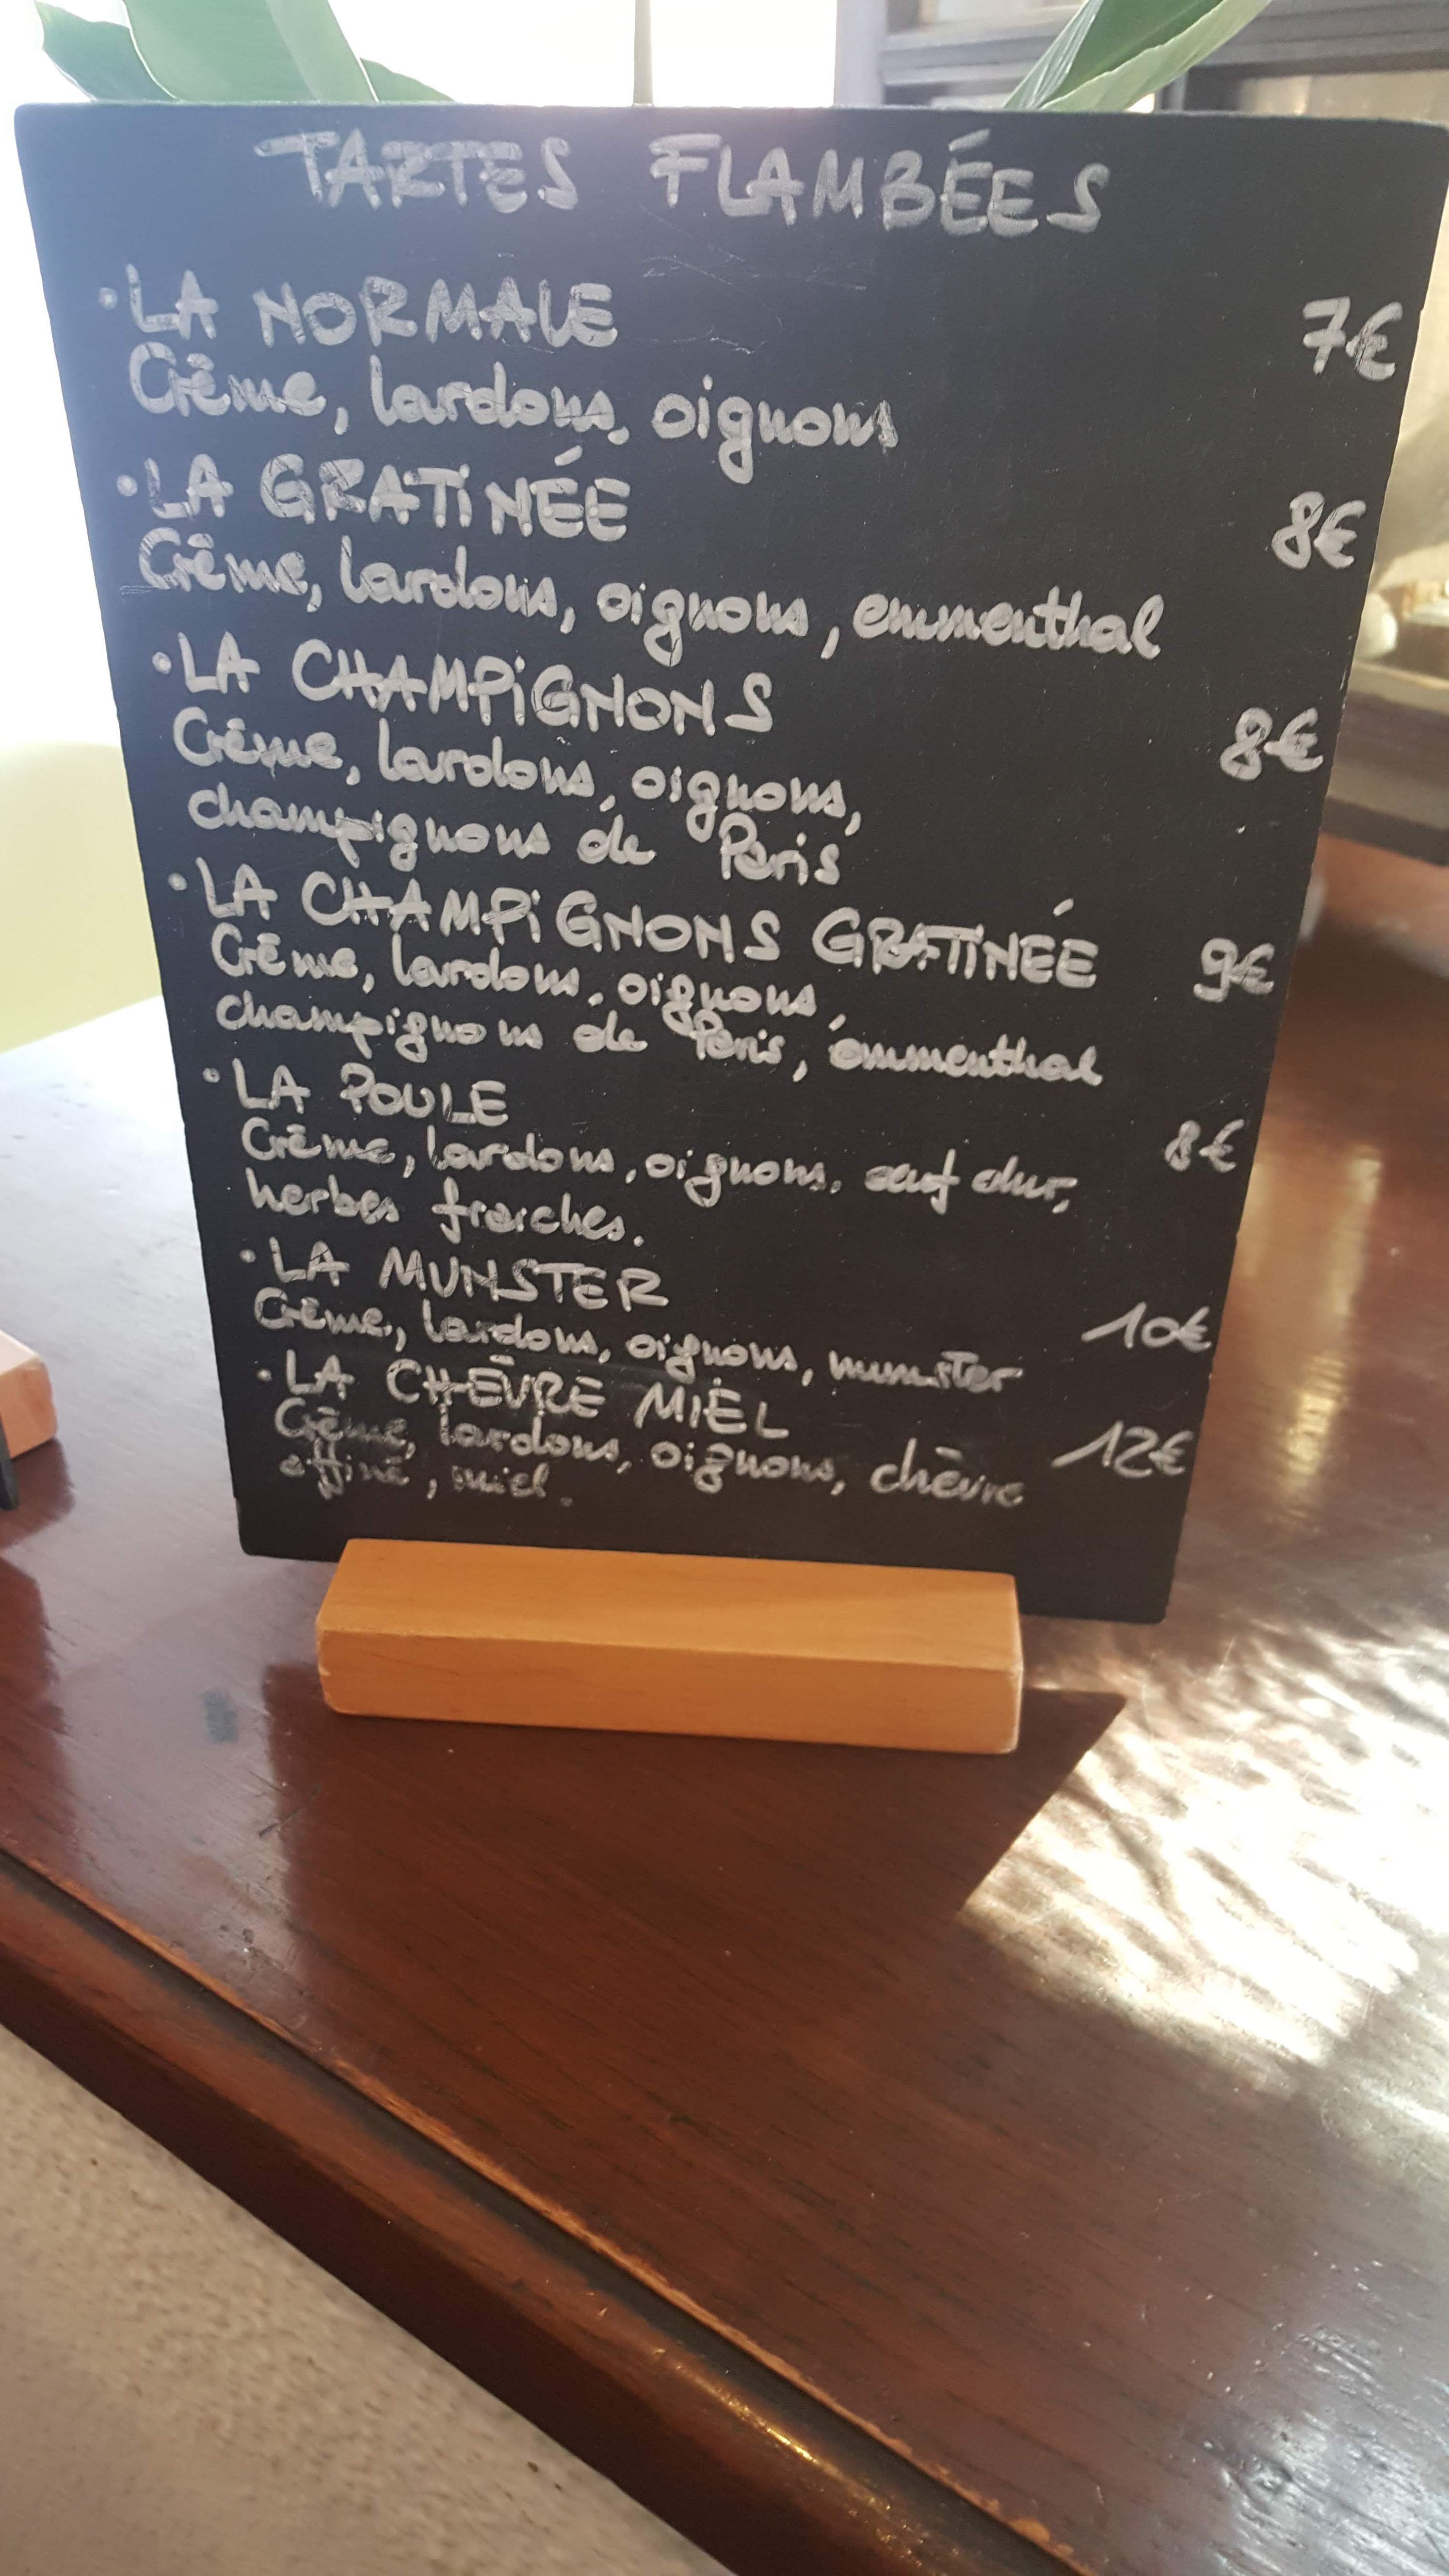 TARTES FLAMBÉES
• LA NORMALE 7€
Crème, lardons, oignons
• LA GRATINÉE 8€
Crème, lardons, oignons, emmenthal
• LA CHAMPIGNONS 8€
Crème, lardons, oignons,
champignons de Paris
• LA CHAMPIGNONS GRATINÉE 9€
Crème, lardons, oignons,
champignons de Paris, emmenthal
• LA POULE 8€
Crème, lardons, oignons, œuf dur,
herbes fraiches.
• LA MUNSTER 10€
Crème, lardons, oignons, munster
• LA CHÈVRE MIEL 12€
Crème, lardons, oignons, chèvre
affiné, miel.